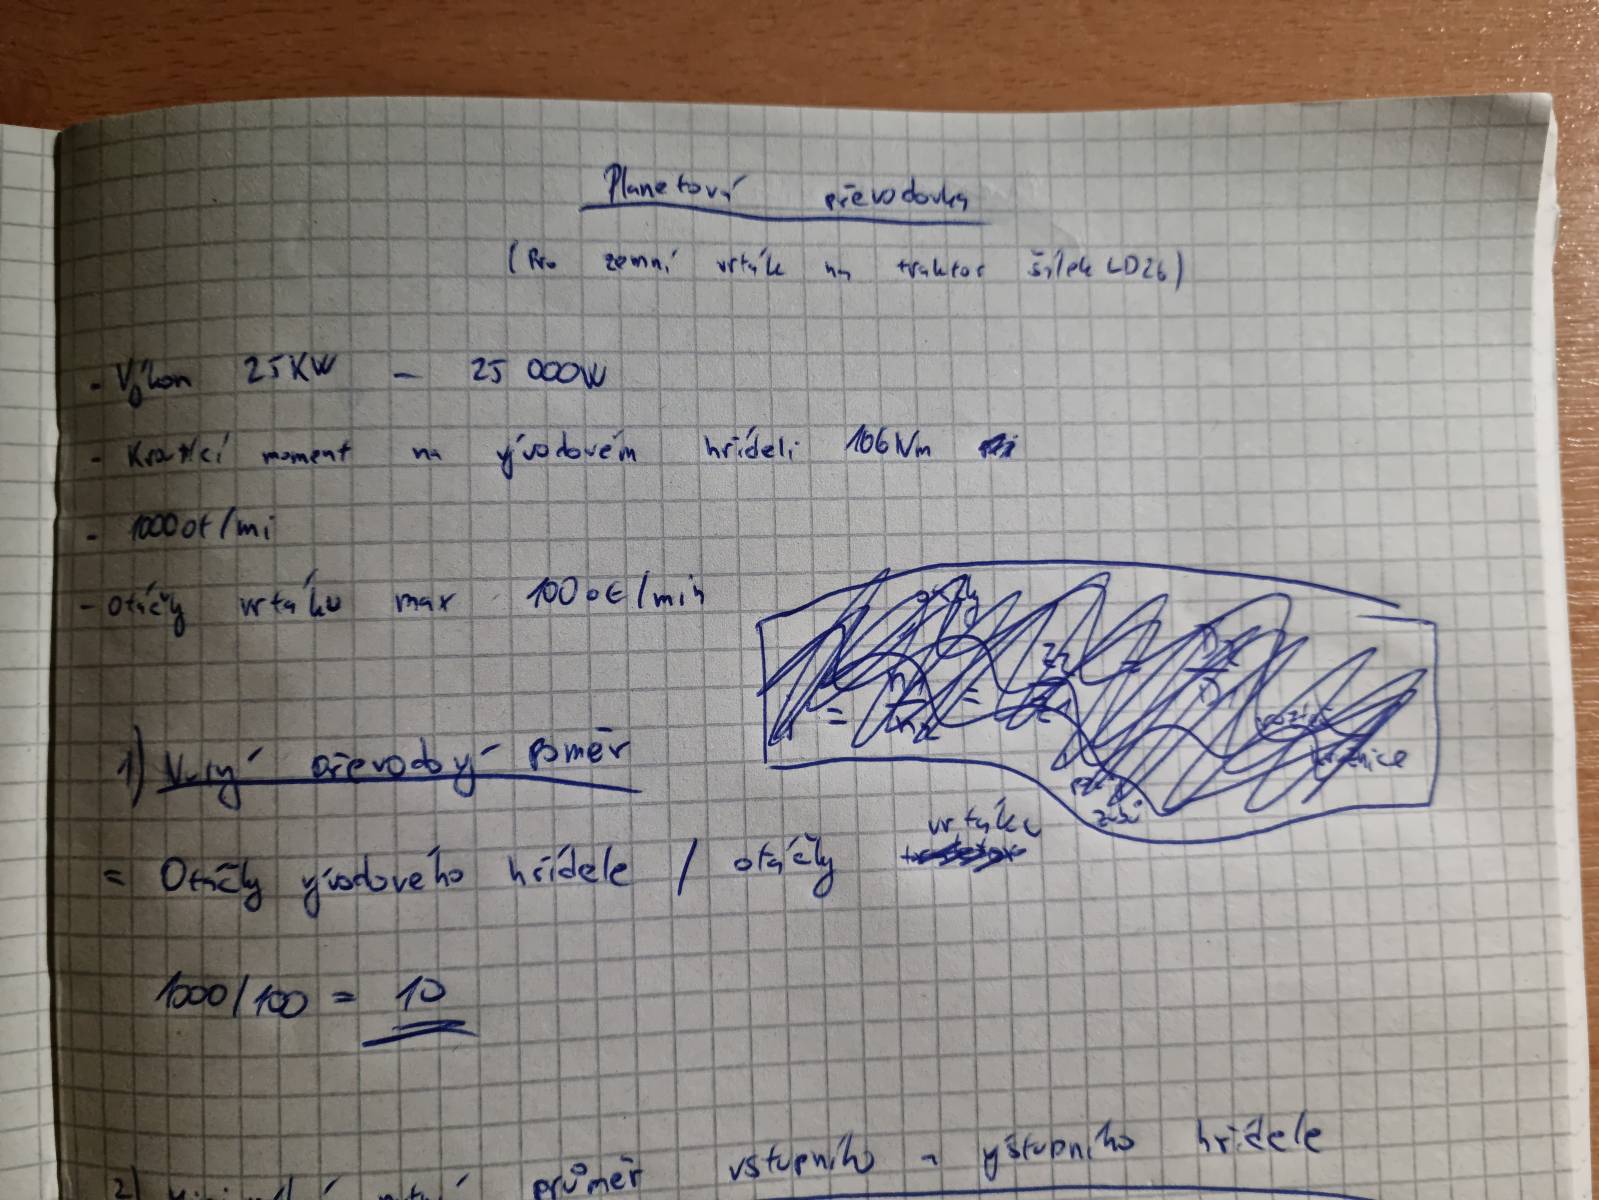 Planetový převodovka
(Pro zemní vrták na traktor šálek LD26)
- Výkon 25KW - 25 000W
- Kroutící moment na vývodovém hřídeli 106Nm
- 1000ot/mi
- Otáčky vrtáku max 100ot/min
1) převodový poměr
= Otáčky vývodového hřídele / otáčky vrtáku
1000/100 = 10
2) průměr vstupního a výstupního hřídele